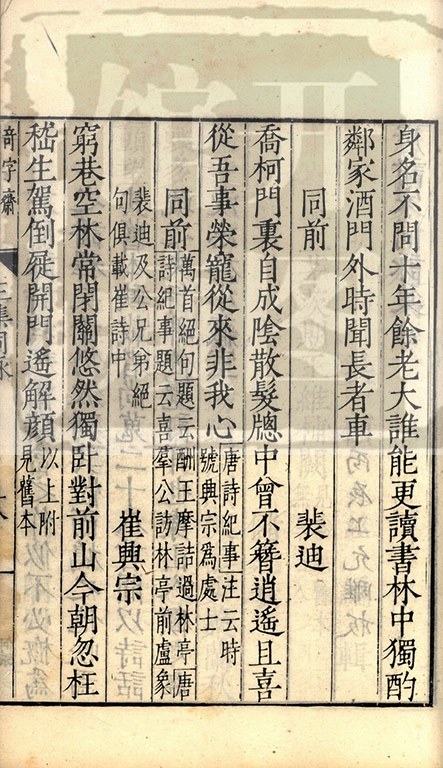 身名不問十年餘老大誰能更讀書林中獨酌
鄰家酒門外時聞長者車
同前 裴迪
喬柯門裏自成陰散髮牕中曾不簪逍遙且喜
從吾事榮寵從來非我心
唐詩紀事注云時
號興宗爲處士
同前
萬首絕句題云酬王摩詰過林亭唐
詩紀事題云喜羣公訪林亭前盧象
裴迪及公兄弟絕
句俱載崔詩中
崔興宗
窮巷空林常閉關悠然獨卧對前山今朝忽枉
嵇生駕倒屣開門遙解顏
以上附
見舊本
竒字齋